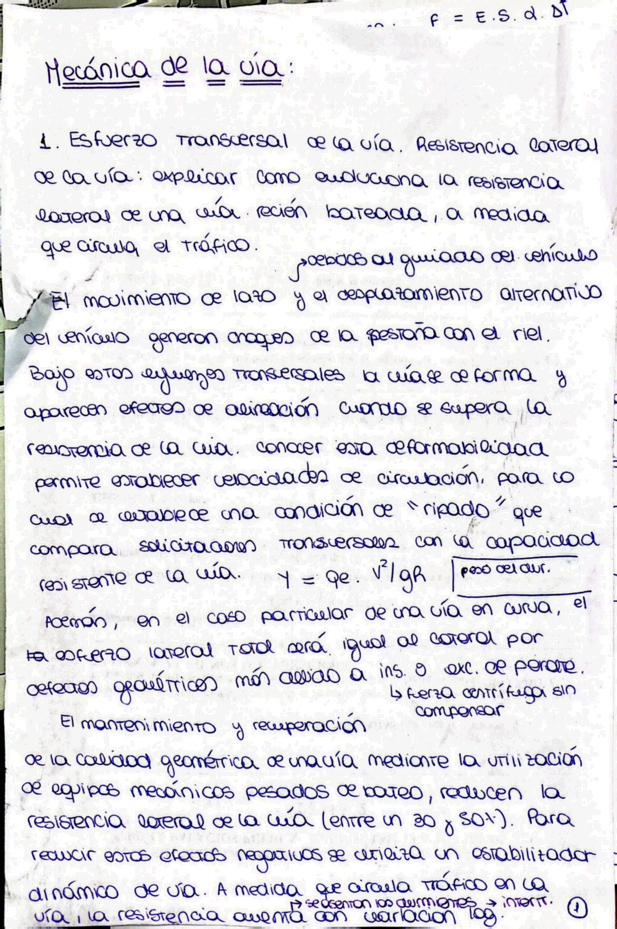 F = E.S.α.ΔT
Mecánica de la vía:
1. Esfuerzo transversal de la vía. Resistencia lateral
de la vía: explicar como evoluciona la resistencia
lateral de una vía recién bateada, a medida
que circula el tráfico.
↳debidos al guiado del vehículo
El movimiento de lazo y el desplazamiento alternativo
del vehículo generan choques de la pestaña con el riel.
Bajo estos esfuerzos transversales la vía se deforma y
aparecen efectos de alineación cuando se supera la
resistencia de la vía. conocer esta deformabilidad
permite establecer velocidades de circulación, para lo
cual se establece una condición de "ripado" que
compara solicitaciones transversales con la capacidad
resistente de la vía. Y = Qe. V²/gR peso del dur.
Además, en el caso particular de una vía en curva, el
esfuerzo lateral total será igual al lateral por
defectos geométricos más debido a ins. o exc. de peralte.
↳ fuerza centrífuga sin
compensar
El mantenimiento y recuperación
de la calidad geométrica de una vía mediante la utilización
de equipos mecánicos pesados de bateo, reducen la
resistencia lateral de la vía (entre un 30 y 50%). Para
reducir estos efectos negativos se utiliza un estabilizador
dinámico de vía. A medida que circula tráfico en la
↳ se asientan los durmientes →
vía, la resistencia aumenta con variación log. 1